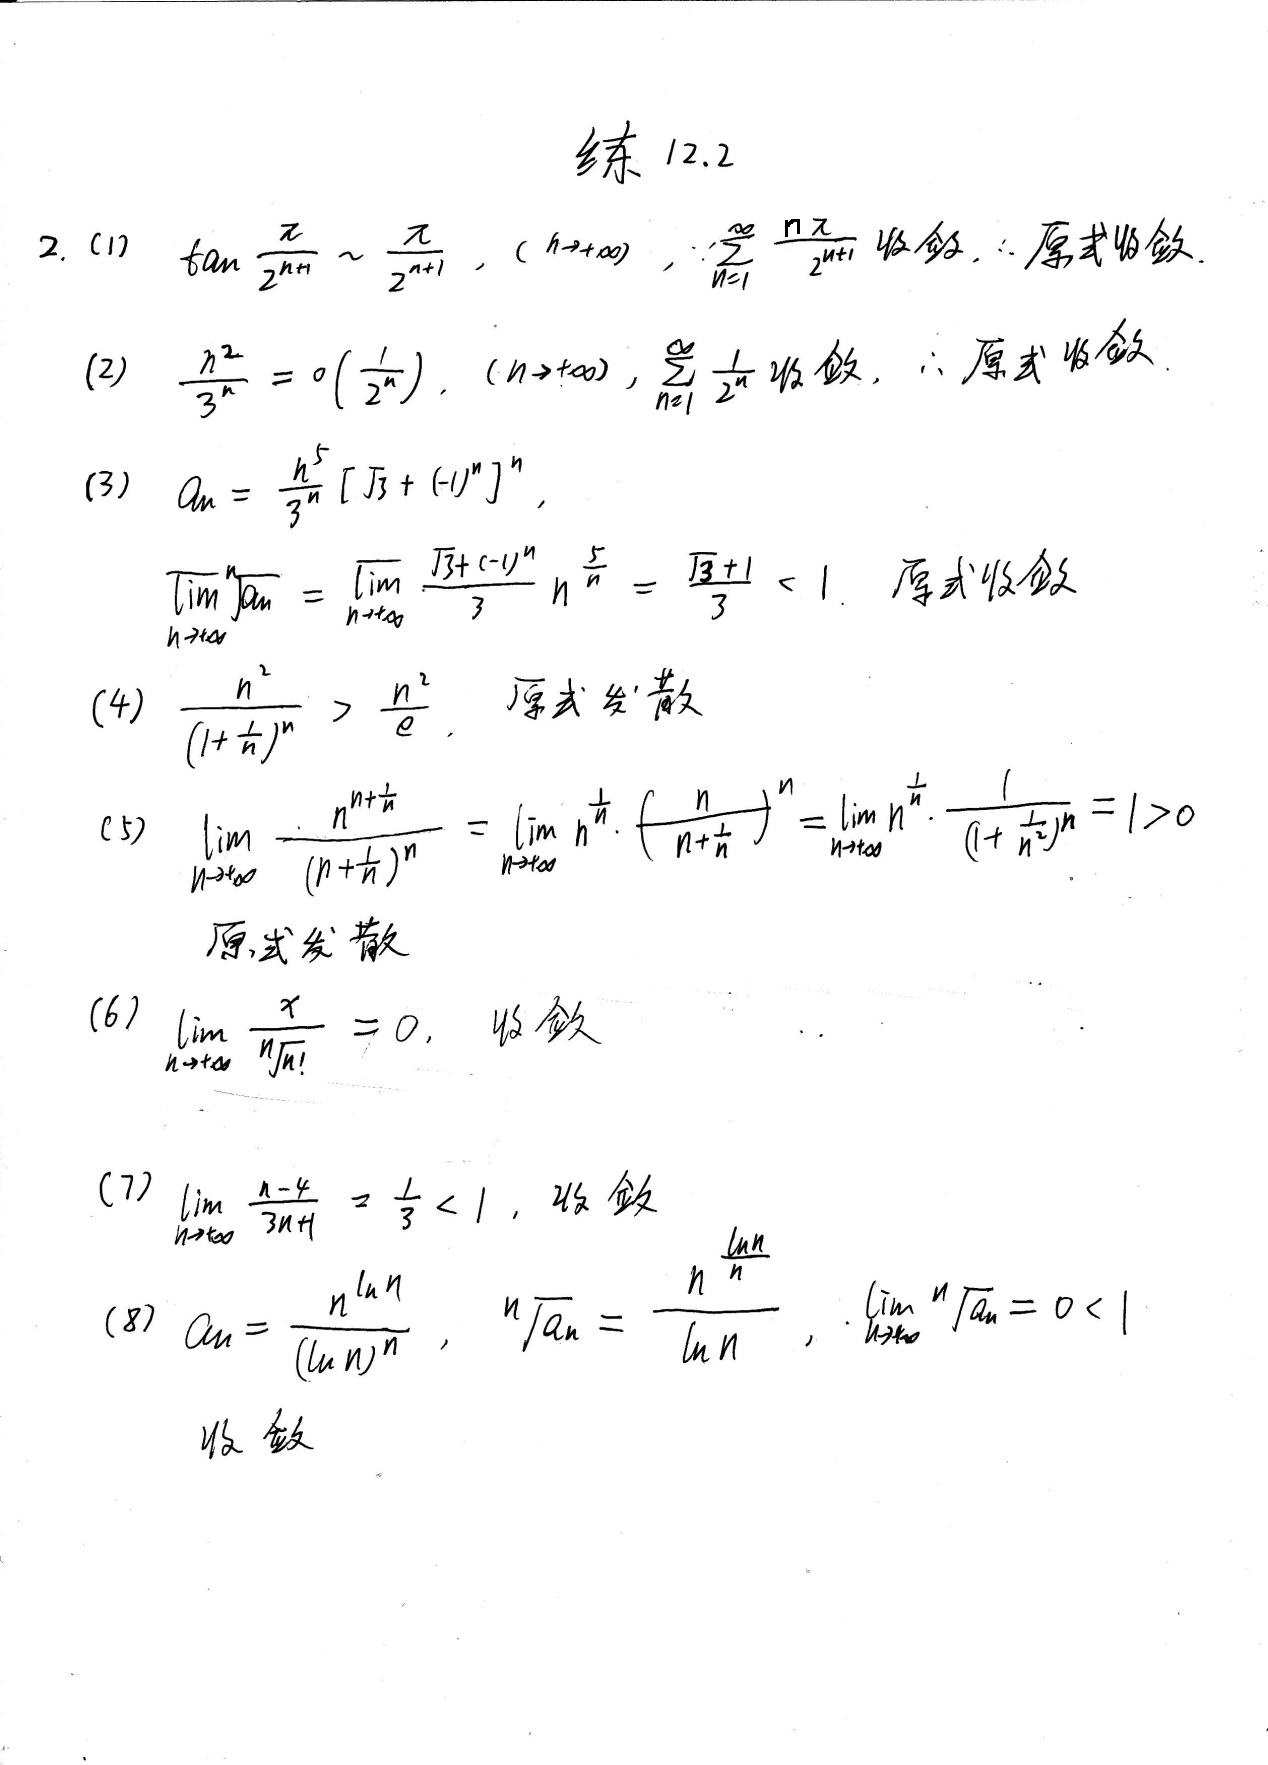 练 12.2
2. (1) tan π/2^{n+1} ~ π/2^{n+1}, (n→+∞), ∵ ∑_{n=1}^{∞} nπ/2^{n+1} 收敛, ∴ 原式收敛.
(2) n²/3ⁿ = o(1/2ⁿ), (n→+∞), ∑_{n=1}^{∞} 1/2ⁿ 收敛, ∴ 原式收敛.
(3) aₙ = n⁵/3ⁿ [√3 + (-1)ⁿ]ⁿ,
\overline{lim}_{n→+∞} ⁿ√aₙ = \overline{lim}_{n→+∞} (√3+(-1)ⁿ)/3 n^{5/n} = (√3+1)/3 < 1. 原式收敛
(4) n²/(1+1/n)ⁿ > n²/e. 原式发散
(5) lim_{n→+∞} n^{n+1/n}/(n+1/n)ⁿ = lim_{n→+∞} n^{1/n}·(n/(n+1/n))ⁿ = lim_{n→+∞} n^{1/n}·1/(1+1/n²)ⁿ = 1>0
原式发散
(6) lim_{n→+∞} x/ⁿ√n! = 0, 收敛
(7) lim_{n→+∞} (n-4)/(3n+1) = 1/3 < 1, 收敛
(8) aₙ = n^{ln n}/(ln n)ⁿ, ⁿ√aₙ = n^{ln n/n}/ln n, lim_{n→+∞} ⁿ√aₙ = 0 < 1
收敛